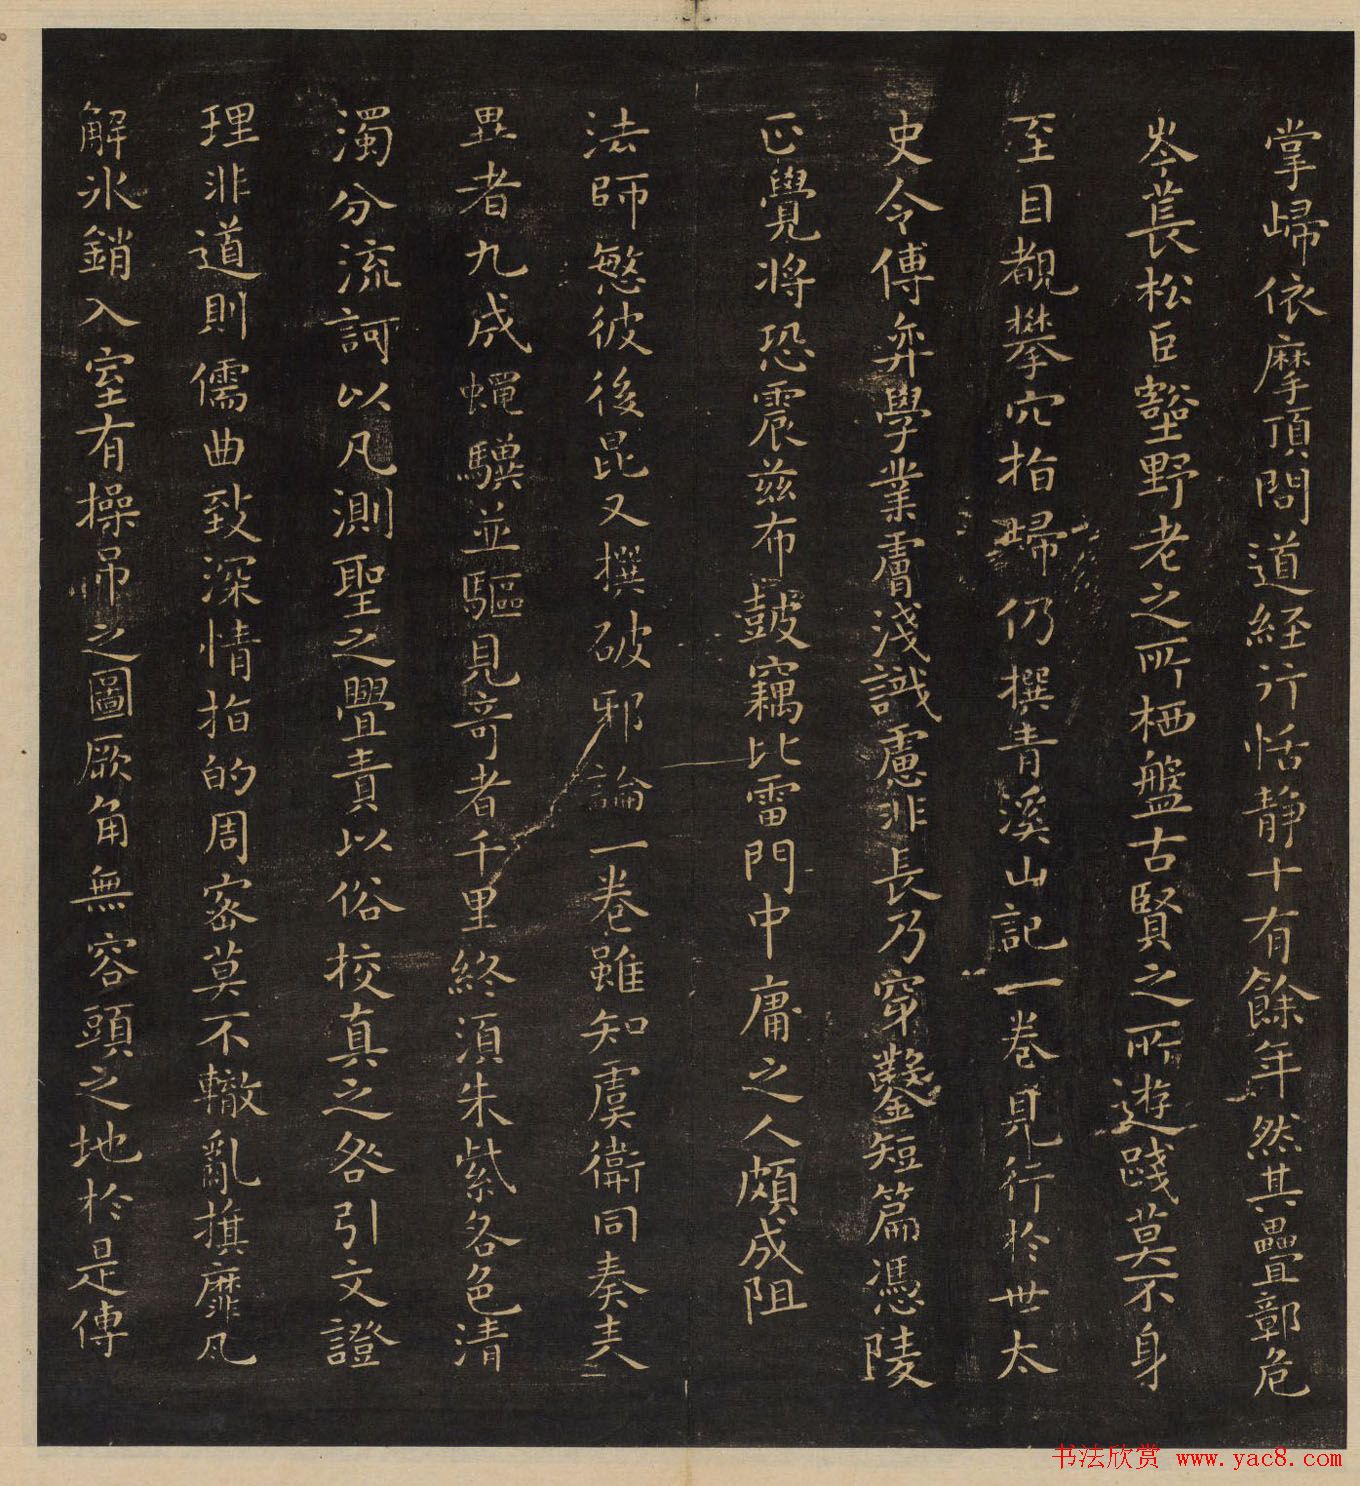 掌歸依摩頂問道經行恬靜十有餘年然其疊鄣危
岑萇松巨豁野老之所栖盤古賢之所遊踐莫不身
至目覩攀穴指歸仍撰青溪山記一卷見行於世太
史令傅弈學業膚淺識慮非長乃穿鑿短篇憑陵
正覺將恐震茲布鼓竊比雷門中庸之人頗成阻
法師愍彼後昆又撰破邪論一卷雖知虞衛同奏表
異者九成蠅驥並驅見奇者千里終須朱紫各色清
濁分流訶以凡測聖之舋責以俗校真之咎引文證
理非道則儒曲致深情指的周密莫不轍亂旗靡瓦
解冰銷入室有操吊之圖厥角無容頭之地於是傳
书法欣赏 www.yac8.com